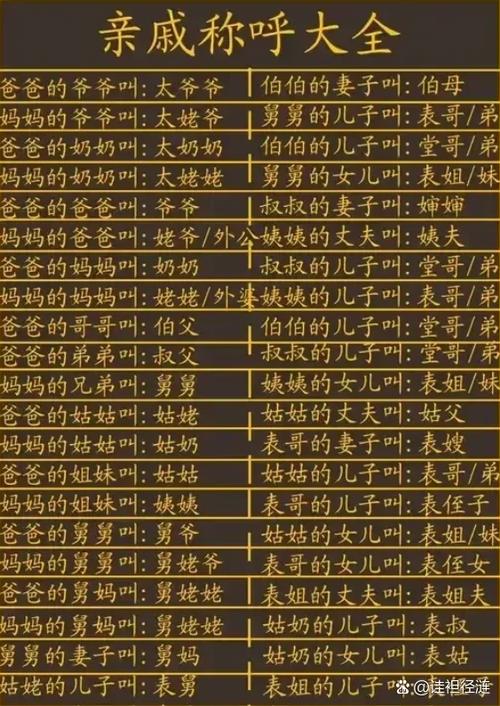 亲戚称呼大全
爸爸的爷爷叫: 太爷爷
妈妈的爷爷叫: 太姥爷
爸爸的奶奶叫: 太奶奶
妈妈的奶奶叫: 太姥姥
爸爸的爸爸叫: 爷爷
妈妈的爸爸叫: 姥爷/外公
爸爸的妈妈叫: 奶奶
妈妈的妈妈叫: 姥姥/外婆
爸爸的哥哥叫: 伯父
爸爸的弟弟叫: 叔父
妈妈的兄弟叫: 舅舅
爸爸的姑姑叫: 姑姥
妈妈的姑姑叫: 姑奶
爸爸的姐妹叫: 姑姑
妈妈的姐妹叫: 姨姨
爸爸的舅舅叫: 舅爷
妈妈的舅舅叫: 舅姥爷
爸爸的舅妈叫: 舅姥姥
妈妈的舅妈叫: 舅姥姥
舅舅的妻子叫: 舅妈
姑姥的儿子叫: 表舅
伯伯的妻子叫: 伯母
舅舅的儿子叫: 表哥/弟
伯伯的儿子叫: 堂哥/弟
舅舅的女儿叫: 表姐/妹
叔叔的妻子叫: 婶婶
姨姨的丈夫叫: 姨夫
叔叔的儿子叫: 堂哥/弟
姨姨的儿子叫: 表哥/弟
伯伯的儿子叫: 堂哥/弟
叔叔的儿子叫: 堂哥/弟
姨姨的女儿叫: 表姐/妹
姑姑的丈夫叫: 姑父
表哥的妻子叫: 表嫂
姑姑的儿子叫: 表哥/弟
表哥的儿子叫: 表侄子
姑姑的女儿叫: 表姐/妹
表哥的女儿叫: 表侄女
表姐的丈夫叫: 表姐夫
姑奶的儿子叫: 表叔
姑奶的女儿叫: 表姑
表姐的儿子叫:
@诖袒经涟